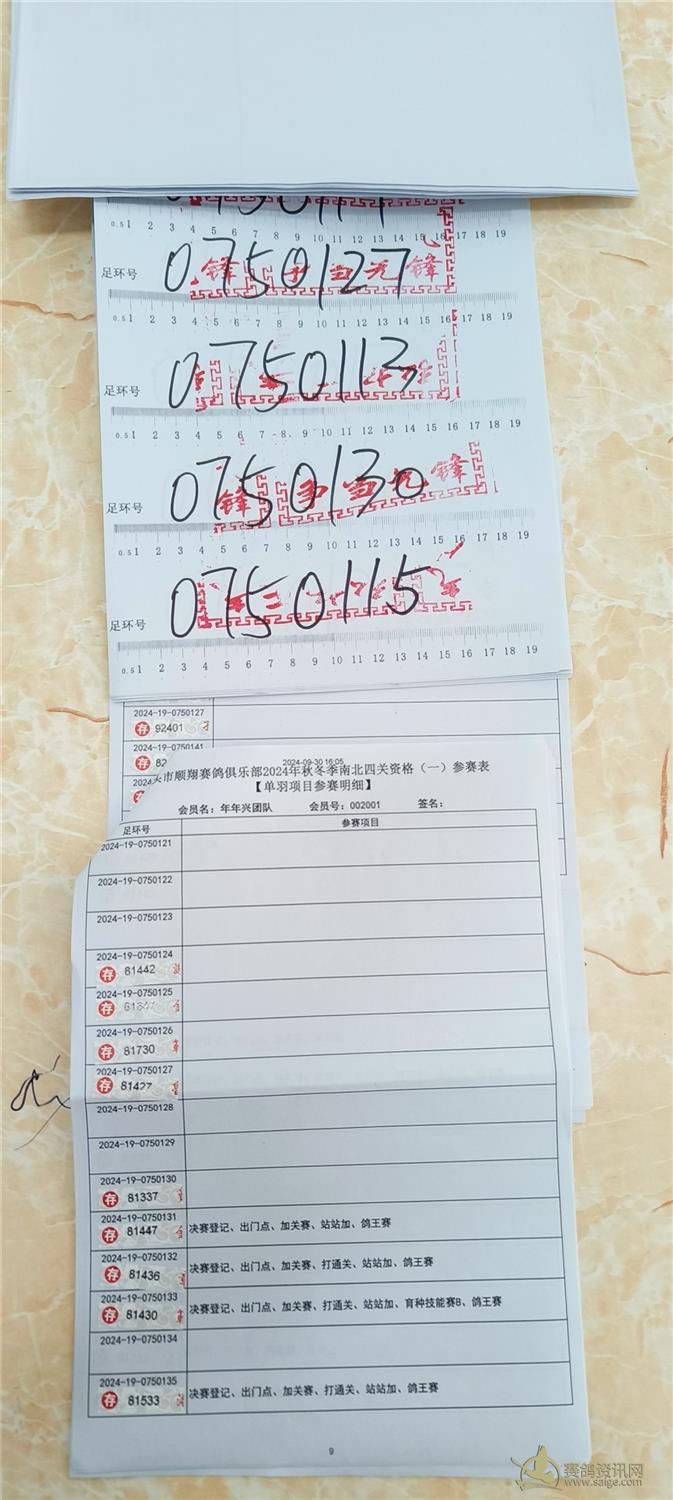 0.5 1 2 3 4 5 6 7 8 9 10 11 12 13 14 15 16 17 18 19
足环号 0750127
锋 争当先锋
0.5 1 2 3 4 5 6 7 8 9 10 11 12 13 14 15 16 17 18 19
足环号 0750113
0.5 1 2 3 4 5 6 7 8 9 10 11 12 13 14 15 16 17 18 19
足环号 0750130
锋 争当先锋
0.5 1 2 3 4 5 6 7 8 9 10 11 12 13 14 15 16 17 18 19
足环号 0750115
0.5 1 2 3 4 5 6 7 8 9 10 11 12 13 14 15 16 17 18 19
2024-19-0750127
存 92401
2024-19-0750141
存 82
2024-09-30 16:05
市顺翔赛鸽俱乐部2024年秋冬季南北四关资格（一）参赛表
【单羽项目参赛明细】
会员名：年年兴团队 会员号：002001 签名：
足环号 参赛项目
2024-19-0750121
2024-19-0750122
2024-19-0750123
2024-19-0750124
存 81442
2024-19-0750125
存
2024-19-0750126
存 81730
2024-19-0750127
存 81427
2024-19-0750128
2024-19-0750129
2024-19-0750130
存 81337
2024-19-0750131
存 81447 决赛登记、出门点、加关赛、站站加、鸽王赛
2024-19-0750132
存 81436 决赛登记、出门点、加关赛、打通关、站站加、鸽王赛
2024-19-0750133
存 81430 决赛登记、出门点、加关赛、打通关、站站加、育种技能赛B、鸽王赛
2024-19-0750134
2024-19-0750135
存 81533 决赛登记、出门点、加关赛、打通关、站站加、鸽王赛
9
赛鸽资讯网
www.saige.com